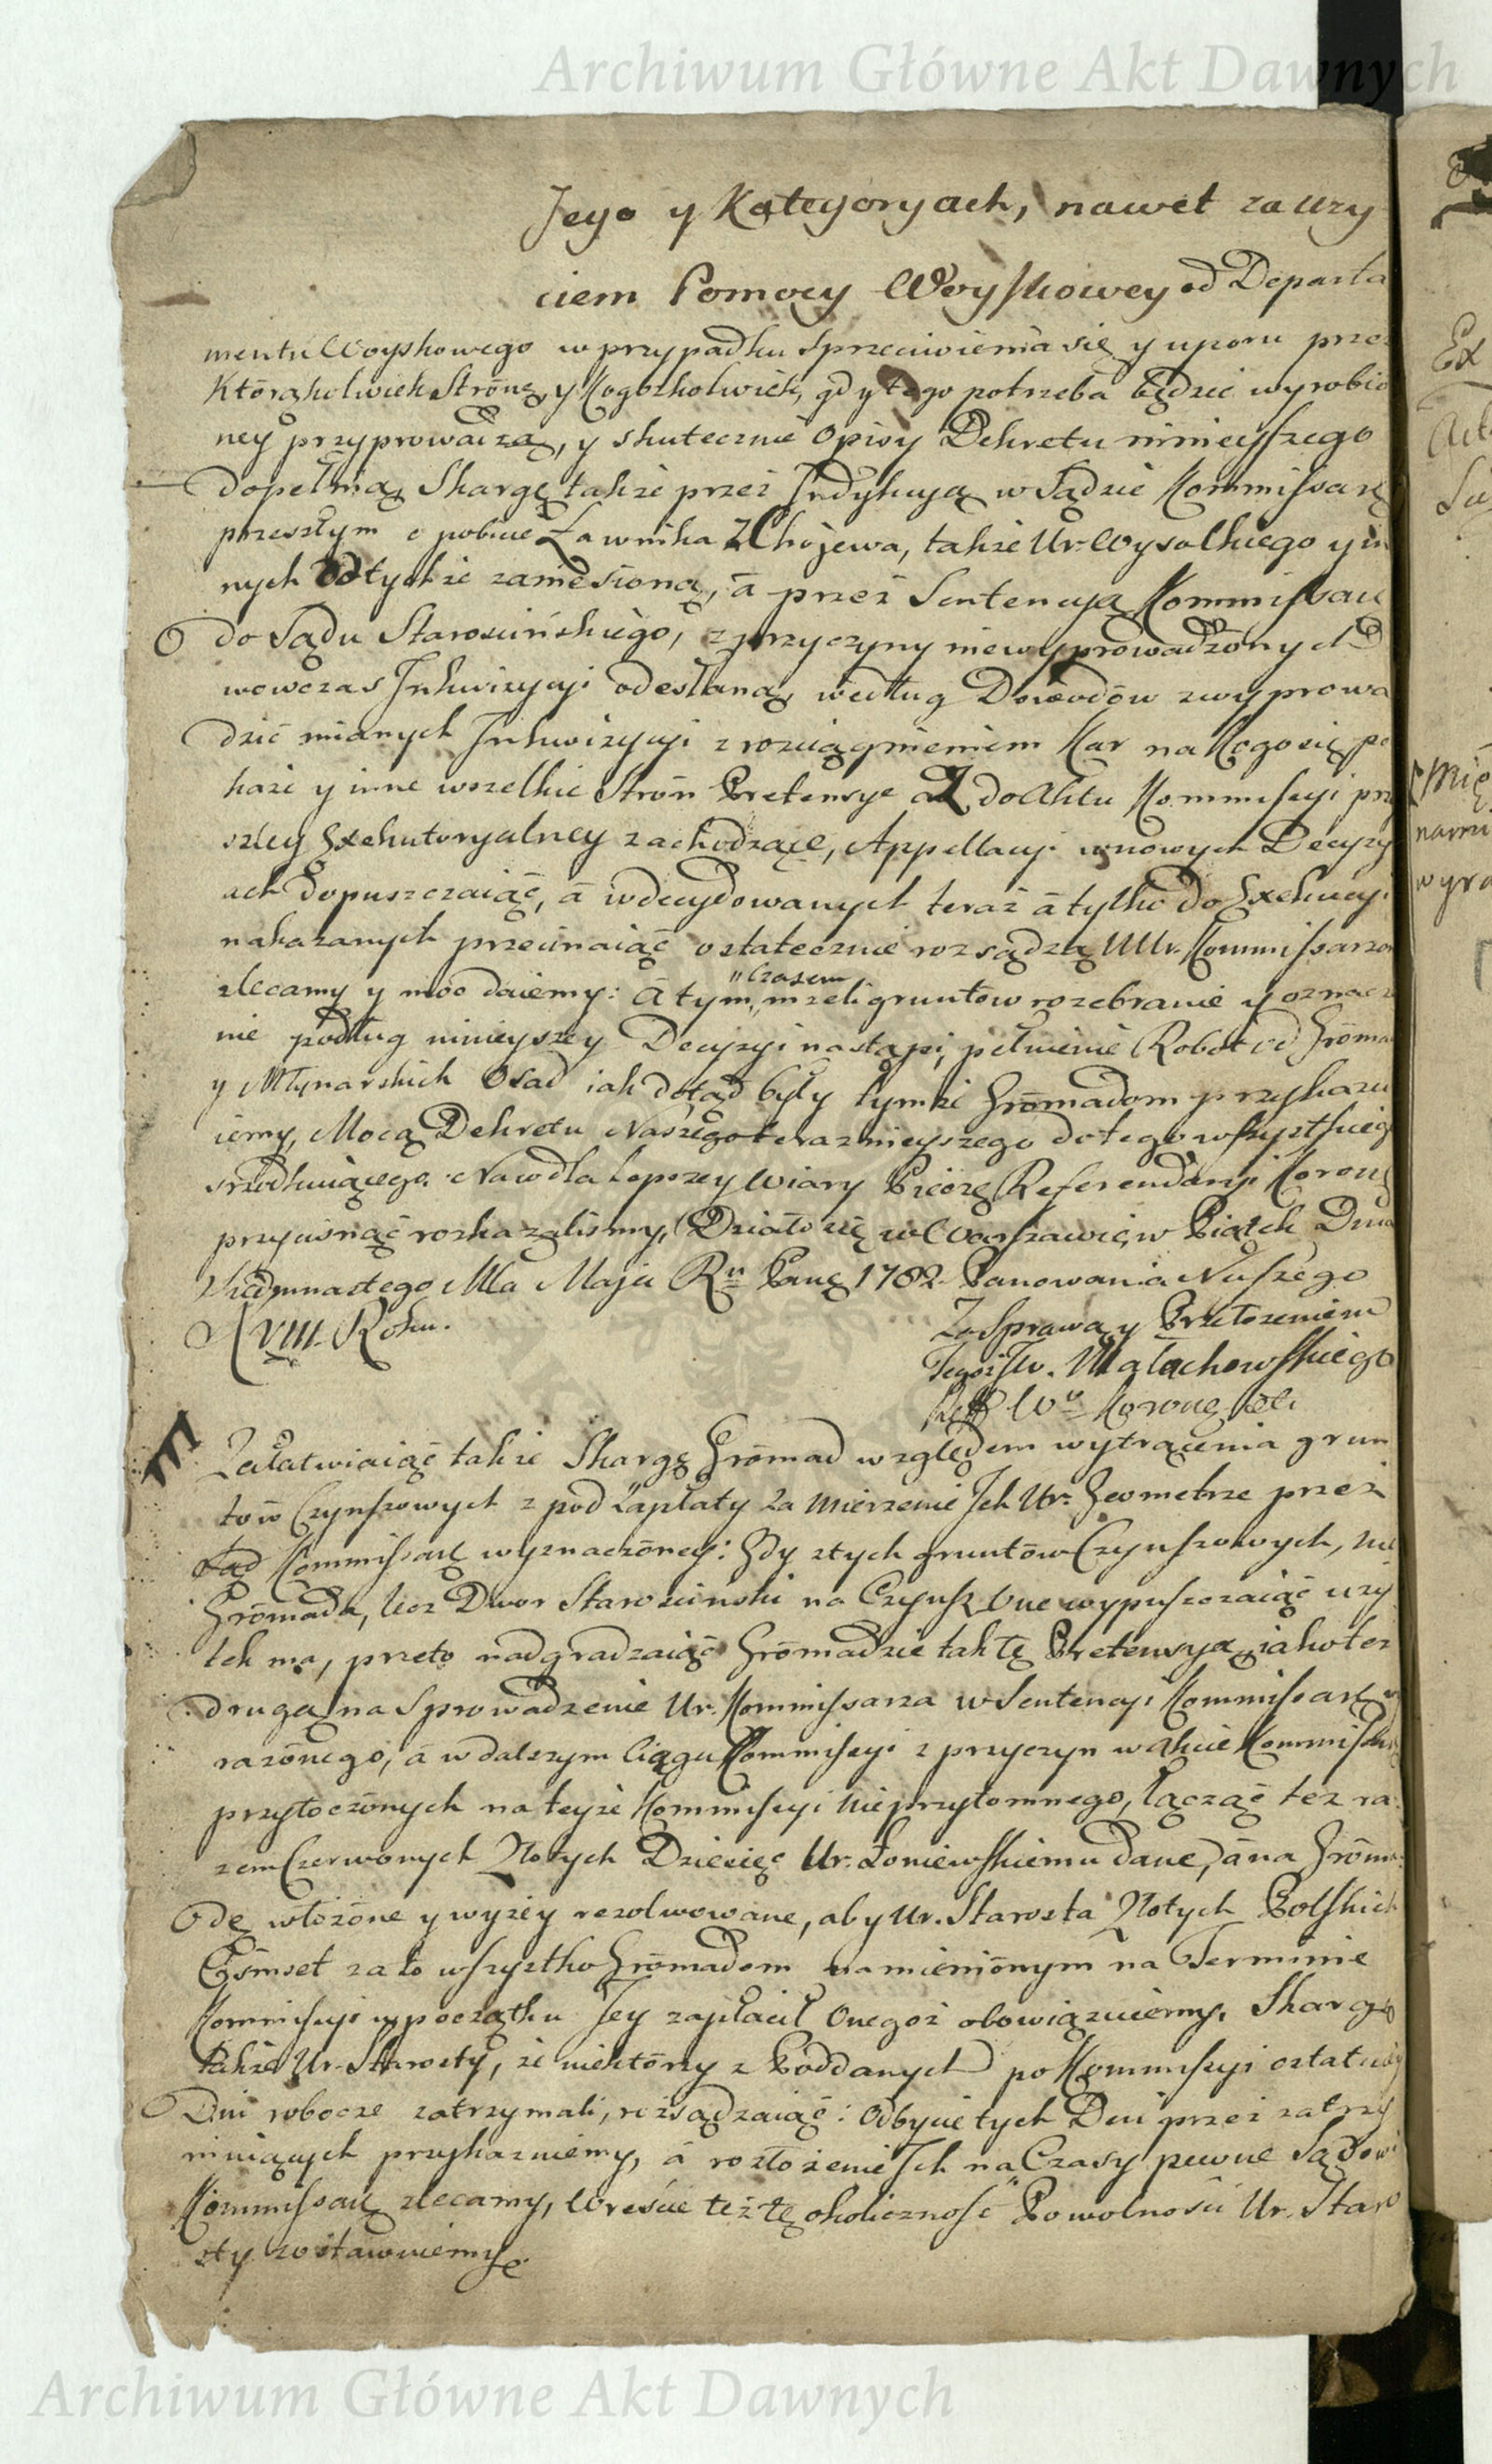 Archiwum Główne Akt Dawnych
Jego y Kategoryach, nawet za uzy
ciem Pomocy Woyskowey od Departa
mentu Woyskowego w przypadku sprzeciwienia się y uporu prze
Którąkolwiek Stronę, y Kogożkolwiek, gdy tego potrzeba będzie wyrobio
ney przyprowadzą, y skutecznie Opisy Dekretu ninieyszego
dopełnią, Skargę także przez Indykcyą w Sądzie Kommissars.
przeszłym o pobicie Ławnika Z Chojewa, także Ur. Wysockiego y in
nych Odtychże zaniesioną, á przez Sentencyą Kommissars.
do Sądu Starościńskiego, z przyczyny niewyprowadzonych
wowczas Inkwizycyi odesłaną, według Dowodów z wyprowa
dzić mianych Inkwizycyi z rozciągnieniem Kar na Kogo się po
każe y inne wszelkie Strón Pretensye aż do Aktu Kommissyi prze
szłey Exekutoryalney zachodzące, Appellacyi w nowych Decyzy
ach dopuszczaiąc, á w decydowanych teraz á tylko do Exekucyi
nakazanych przecinaiąc ostatecznie rozsądzą UUr. Kommissarzom
zlecamy y moc daiemy: á tym "Czasem" nizeli gruntow rozebranie y oznacze
nie podług ninieyszey Decyzyi nastąpi, pełnienie Robot od Gromad
y Młynarskich Osad iak dotąd były tymże Gromadom przykazu
iemy, Mocą Dekretu Naszego teraznieyszego do tego wszystkiego
srzodkuiącego. Na co dla lepszey Wiary Pieczę Referendaryi Korone
przycisnąć rozkazalismy, Działo się w Warszawie w Piątek Dnia
Siedmnastego Mca Maja Ru Pańs. 1782. Panowania Naszego
XVIII. Roku.
Za Sprawą y Przełozeniem
Tegoż Jw. Małachowskiego
Reff Wo Koronne.
Załatwiaiąc także Skargę Gromad względem wytrącenia grun
tow Czynszowych z pod Zapłaty za Mierzenie Ich Ur. Geometrze przez
Sąd Kommissars. wyznaczoney: Gdy z tych gruntów Czynszowych, nie
Gromada, lecz Dwor Starosciński na Czynsz One wypuszczaiąc uzy
tek ma, przeto nadgradzaiąc Gromadzie tak tę Pretensyą, iako tez
drugą na Sprowadzenie Ur. Kommissarza w Sentencyi Kommissars. wy
rażonego, á w dalszym Ciągu Kommissyi z przyczyn w Akcie Kommissars.
przytoczonych na teyże Kommissyi nieprzytomnego, łącząc też ra
zem Czerwonych Złotych Dziesięć Ur. Łoniewskiemu dane, á na Groma
dę włożone y wyzey rezolwowane, aby Ur. Starosta Złotych Polskich
Ośmset za to wszystko Gromadom namienionym na Terminie
Kommissyi w początku Jey zapłacił Onegoż obowiązuiemy. Skargę
także Ur. Starosty, że niektórzy z Poddanych po Kommissyi ostatniey
Dni robocze zatrzymali, rozsądzaiąc: Odbycie tych Dni przez zatrzy
muiących przykazuiemy, á rozłożenie Ich na Czasy pewne Sądowi
Kommissars. zlecamy, Wreście też tę okoliczność Powolności Ur. Staro
sty zostawuiemy.
Ex
Act
Mię
nami
wyra
Archiwum Główne Akt Dawnych